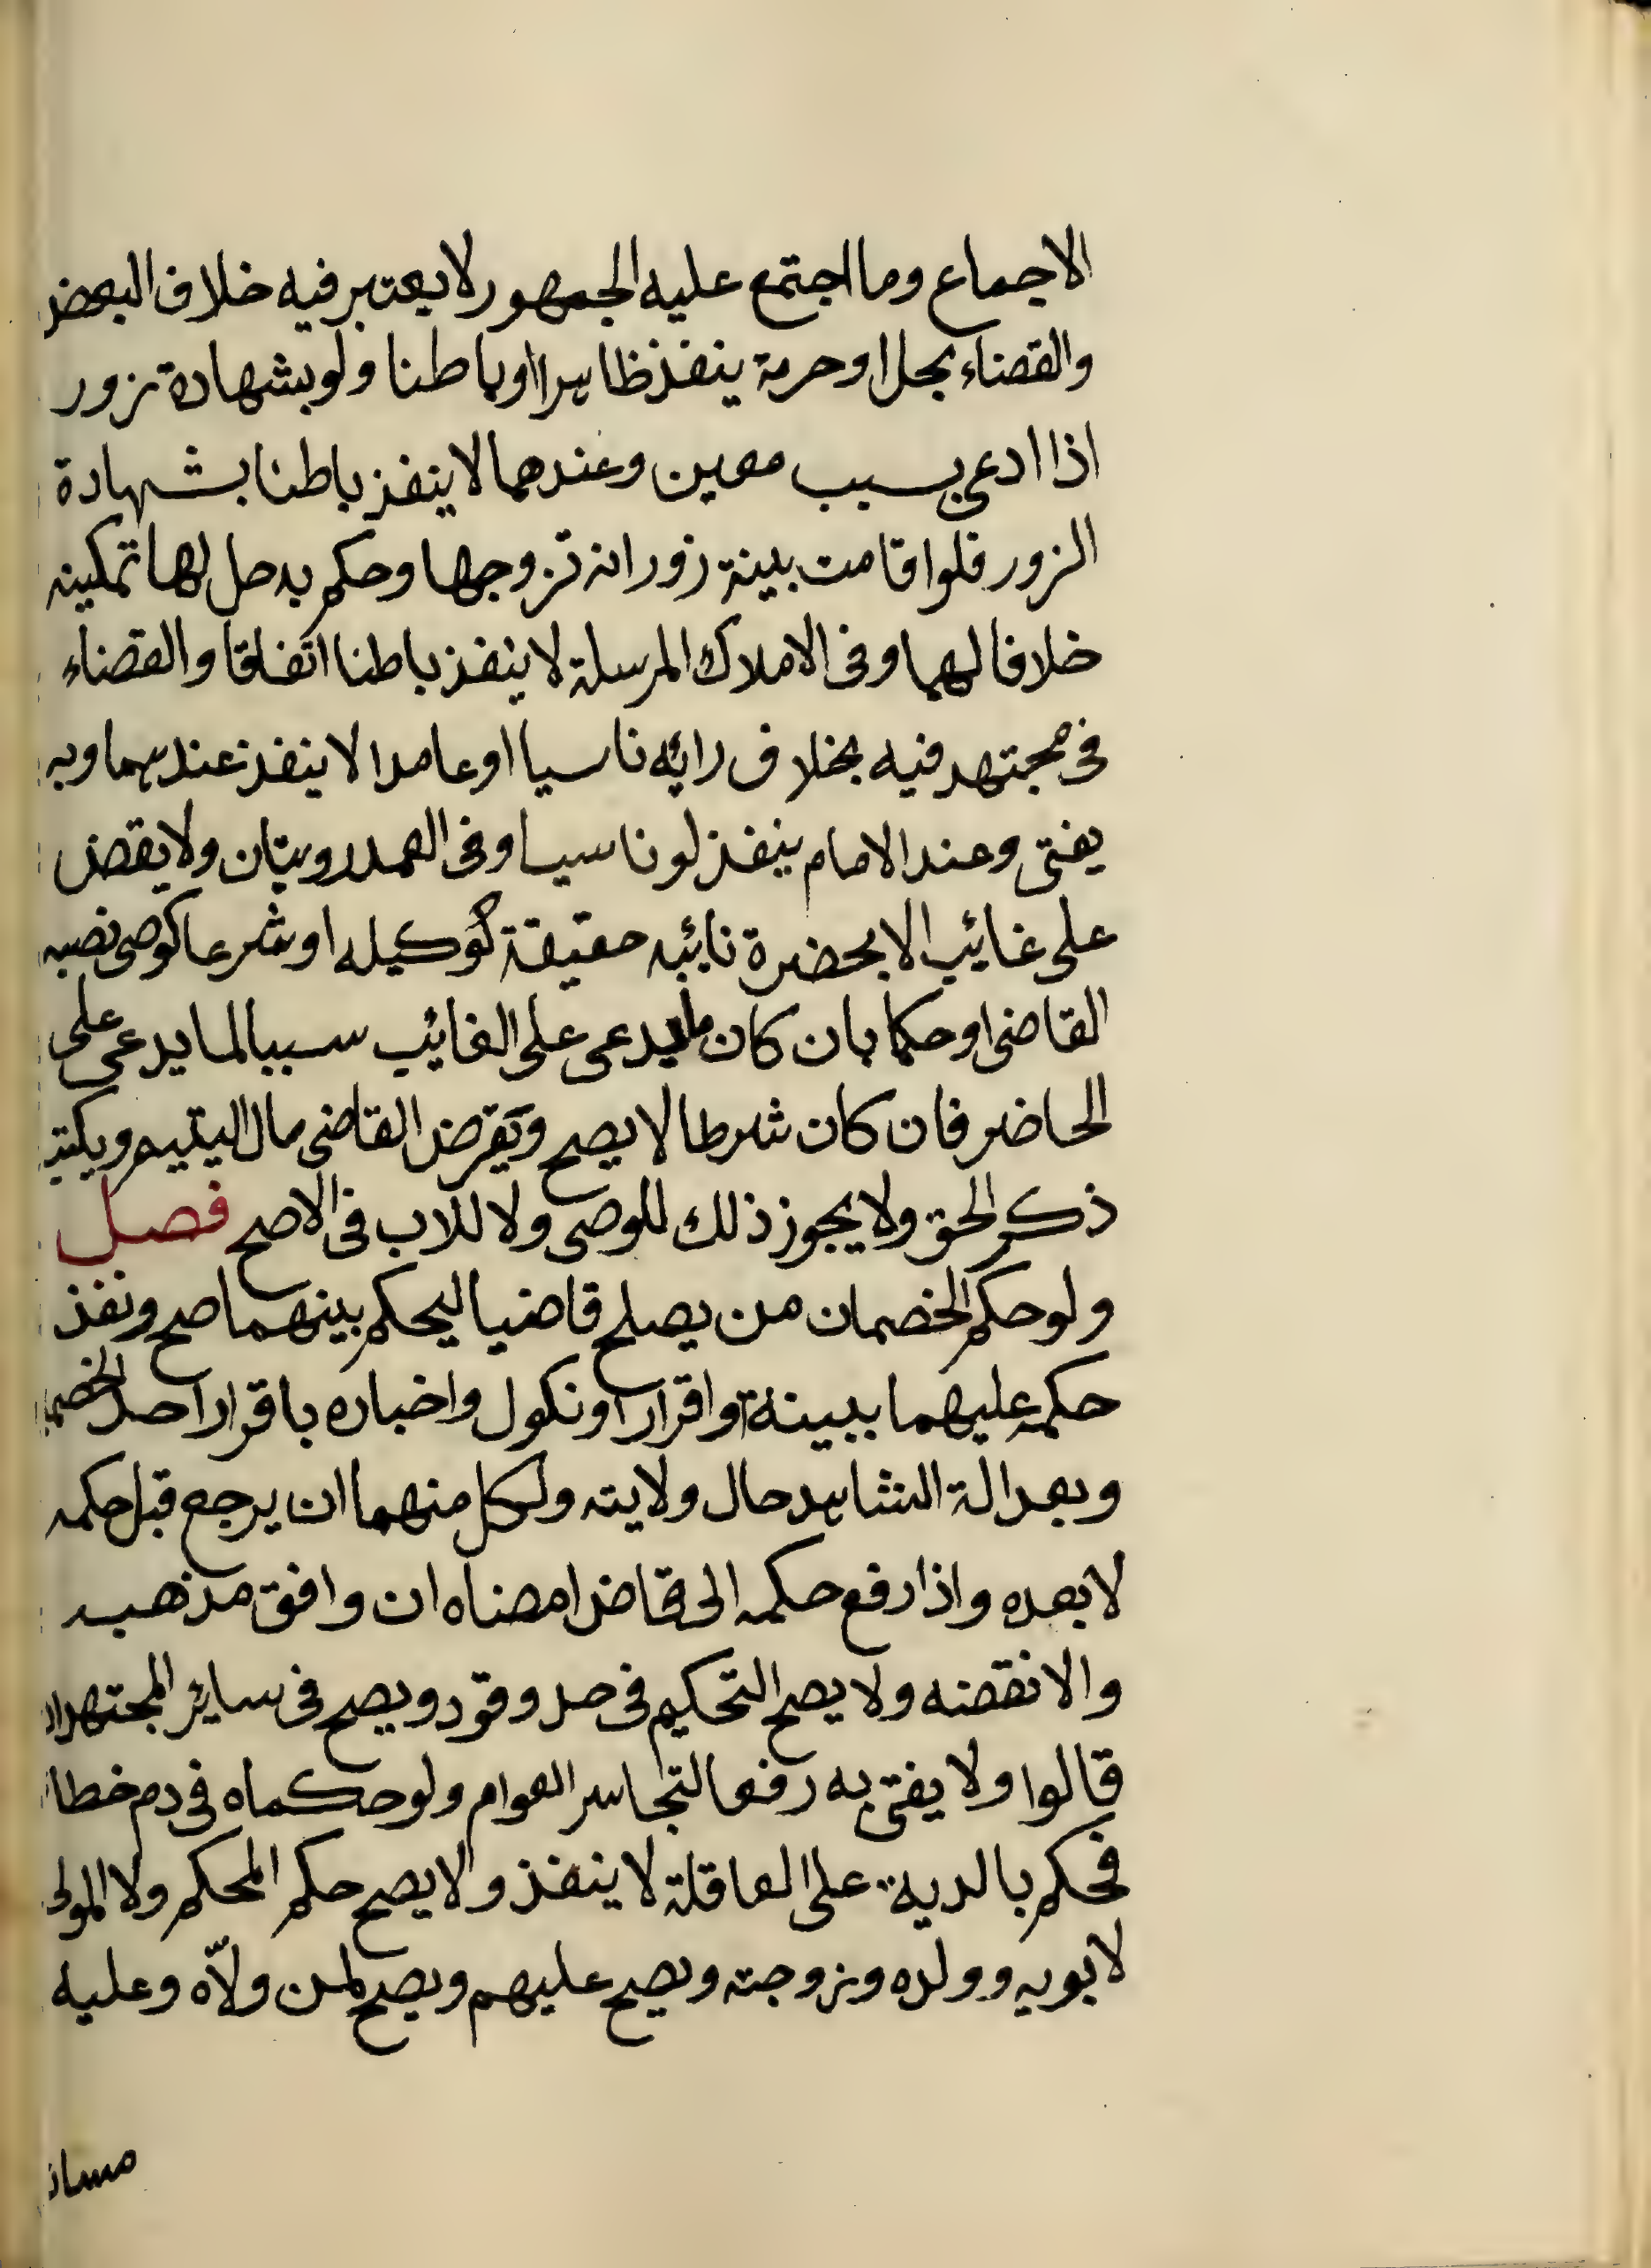 الاجماع وما اجتمع عليه الجمهور لا يعتبر فيه خلاف البعض
والقضاء بحل او حرمة ينفذ ظاهرا وباطنا ولو بشهادة زور
اذا ادعى بسبب معين وعندهما لا ينفذ باطنا بشهادة
الزور فلو اقامت بينة زور انه تزوجها وحكم به حل لها تمكينه
خلافا لهما وفى الاملاك المرسلة لا ينفذ باطنا اتفاقا والقضاء
فى مجتهد فيه بخلاف رائه ناسيا او عامدا لا ينفذ عندهما وبه
يفتى وعند الامام ينفذ لو ناسيا وفى العمد روبتان ولا يقضى
على غائب الا بحضرة نائبه حقيقة كوكيله او شرعا كوصى نصبه
القاضى او حكما بان كان ما يدعى على الغائب سببا لما يدعى على
الحاضر فان كان شرطا لا يصح ويقرض القاضى مال اليتيم ويكتب
ذكر الحق ولا يجوز ذلك للوصى ولا للاب فى الاصح فصل
ولو حكم الخصمان من يصلح قاضيا ليحكم بينهما صح ونفذ
حكمه عليهما ببينة او اقرار او نكول واخباره باقرار احد الخصمين
وبعدالة الشاهد حال ولايته ولكل منهما ان يرجع قبل حكمه
لا بعده واذا رفع حكمه الى قاض امضاه ان وافق مذهبه
والا نقضه ولا يصح التحكيم فى حد وقود ويصح فى سائر المجتهدات
قالوا ولا يفتى به رفعا لتجاسر العوام ولو حكماه فى دم خطا
فحكم بالدية على العاقلة لا ينفذ ولا يصح حكم المحكم ولا المولى
لابويه وولده وزوجته ويصح عليهم ويصح لمن ولّاه وعليه